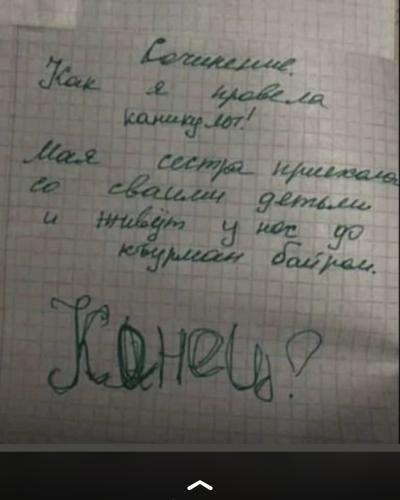 Сочинение.
Как я провела
каникулы!
Мая сестра приехала
со сваими детьми
и живут у нос до
курман байрам.
Канец!